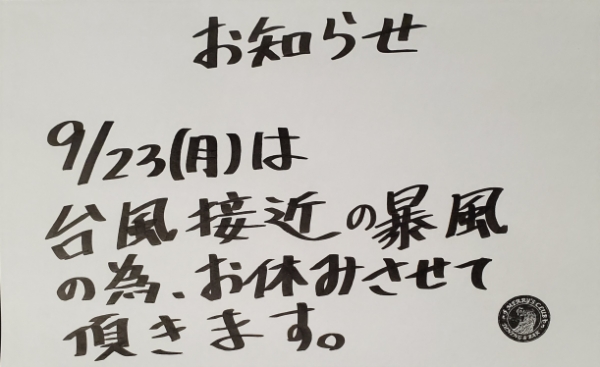 お知らせ
9/23(月)は
台風接近の暴風
の為、お休みさせて
頂きます。